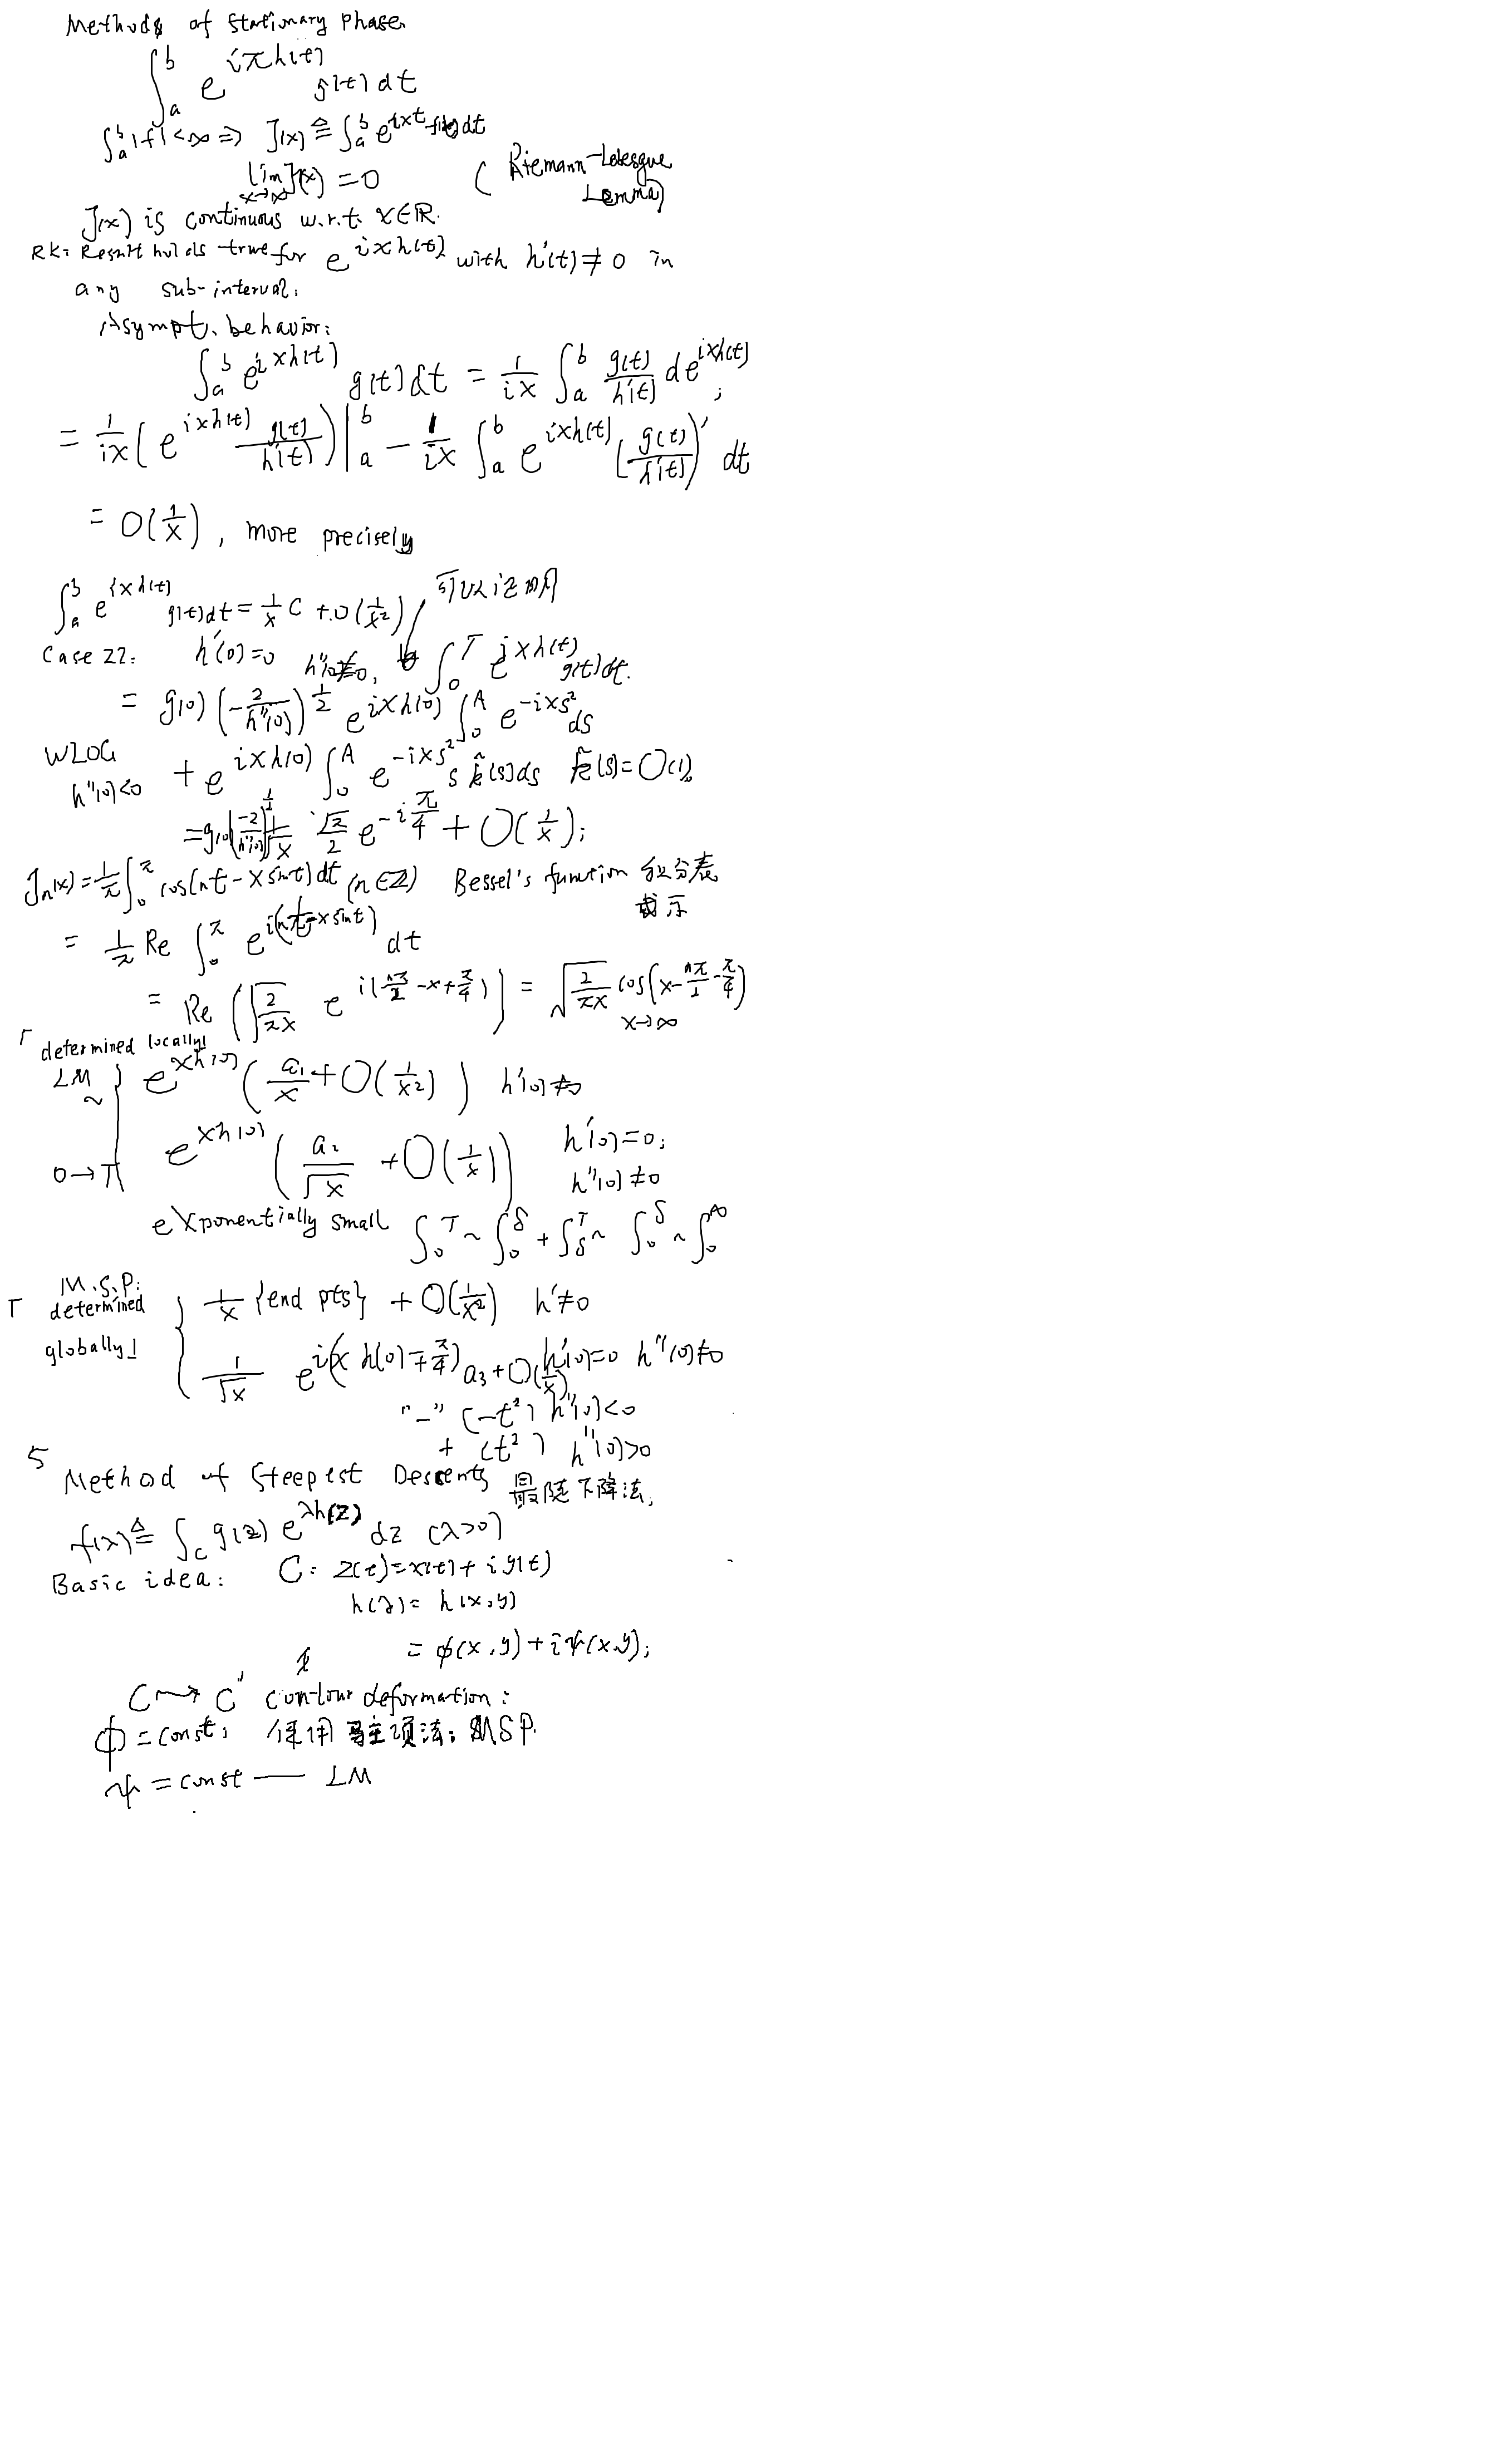 Methods of Stationary Phase.
∫_a^b e^{iπh(t)} g(t)dt
∫_a^b |f| < ∞ ⇒ J(x) ≜ ∫_a^b e^{ixt} f(t)dt
lim_{x→∞} J(x) = 0 ( Riemann-Lebesgue
Lemma)
J(x) is continuous w.r.t. x∈ℝ.
RK: Result holds true for e^{ixh(t)} with h'(t)≠0 in
any sub-interval.
Asympt. behavior:
∫_a^b e^{ixh(t)} g(t)dt = 1/(ix) ∫_a^b g(t)/h'(t) de^{ixh(t)};
= 1/(ix) (e^{ixh(t)} g(t)/h'(t))|_a^b − 1/(ix) ∫_a^b e^{ixh(t)} (g(t)/h'(t))' dt
= O(1/x), more precisely
∫_a^b e^{ixh(t)} g(t)dt = 1/x C + O(1/x²) 可以证明
Case II: h'(0)=0 h''(0)≠0, ∫_0^T e^{ixh(t)} g(t)dt.
= g(0) (−2/h''(0))^{1/2} e^{ixh(0)} ∫_0^A e^{−ixs²} ds
WLOG h''(0)<0 + e^{ixh(0)} ∫_0^A e^{−ixs²} s k̃(s)ds k̃(s)=O(1),
= g(0) (−2/h''(0))^{1/2} 1/√x √π/2 e^{−iπ/4} + O(1/x);
J_n(x) = 1/π ∫_0^π cos(nt − x sint)dt (n∈Z) Bessel's function 积分表
示
= 1/π Re ∫_0^π e^{i(nt − x sint)} dt
= Re (√(2/(πx)) e^{i(nπ/2 − x + π/4)}) = √(2/(πx)) cos(x − nπ/2 − π/4)
x→∞
「determined locally」
LM ~ { e^{xh(0)} (a₁/x + O(1/x²)) h'(0)≠0
0→T e^{xh(0)} (a₂/√x + O(1/x)) h'(0)=0;
h''(0)≠0
exponentially small ∫_0^T ~ ∫_0^δ + ∫_δ^T ~ ∫_0^δ ~ ∫_0^∞
M.S.P.:
「determined globally」 { 1/x {end pts} + O(1/x²) h'≠0
1/√x e^{i(x h(0) ∓ π/4)} a₃ + O(1/x) h'(0)=0 h''(0)≠0
"−" (−t²) h''(0)<0
+ (t²) h''(0)>0
5 Method of Steepest Descents 最陡下降法.
f(λ) ≜ ∫_C g(z) e^{λh(z)} dz (λ>0)
Basic idea: C: z(t)=x(t)+iy(t)
h(z) = h(x,y)
= φ(x,y)+iψ(x,y);
C ⇝ C' contour deformation:
φ = const; 使用驻项法: MSP.
ψ = const — LM